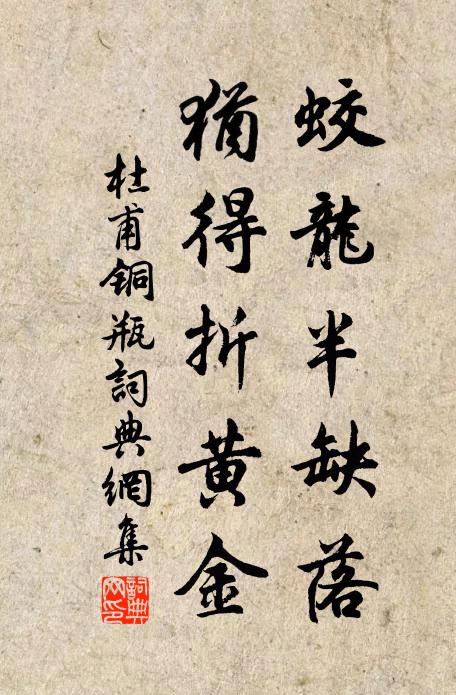 蛟龍半缺落
猶得折黃金
杜甫銅瓶詞典網集
詞典網印